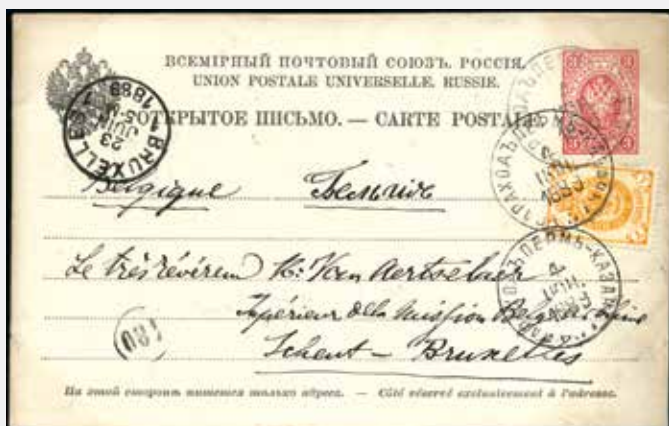 ВСЕМІРНЫЙ ПОЧТОВЫЙ СОЮЗЪ. РОССІЯ.
UNION POSTALE UNIVERSELLE. RUSSIE.
ОТКРЫТОЕ ПИСЬМО. — CARTE POSTALE
BRUXELLES
23 JUIL
1889
Belgique
Le très révérem
Van Aertselaer
Supérieur de la Mission Belge
Scheut - Bruxelles
ПАРОХОДЪ ПЕРМЬ-КАЗАНЬ
На этой сторонѣ пишется только адресъ. — Côté réservé exclusivement à l'adresse.